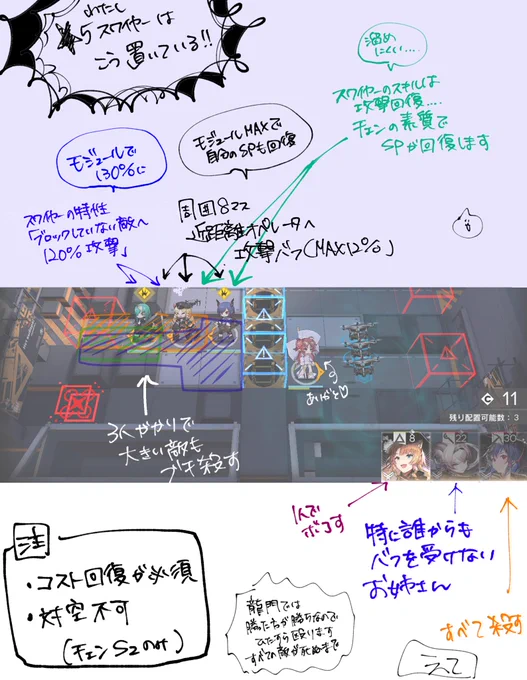 わたし
★5 スワイヤーは
こう置いている!!
溜め
にくい....
スワイヤーのスキルは
攻撃回復....
チェンの素質で
SPが回復します
モジュールMAXで
自分のSPも回復
モジュールで
130%に
周囲8マス
近距離オペレータへ
攻撃バフ(MAX12%)
スワイヤーの特性
「ブロックしていない敵へ
120%攻撃」
ありがと♡
3人がかりで
大きい敵も
ブチ殺す
C 11
残り配置可能数:3
8
22
30
1人で
ボコす
特に誰からも
バフを受けない
お姉さん
すべて殺す
注
・コスト回復が必須
・対空不可
(チェンS2のみ)
龍門では
勝った方が勝ちなので
ひたすら殴ります
すべての敵が死ぬまで